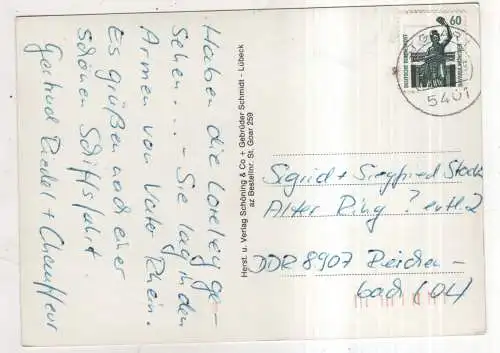 Haben die Loreley ge-
sehen... - Sie lag in den
Armen von Vater Rhein.
Es grüßen nach einer
schönen Schiffsfahrt
Gertrud Riedel + Chauffeur
Herst. u. Verlag Schöning & Co + Gebrüder Schmidt - Lübeck
az Bestellnr. St. Goar 259
60
DEUTSCHE BUNDESPOST
5401
Sigrid + Siegfried Stock
Alter Ring ? evtl. 2
DDR 8907 Reichen-
bach (OL)